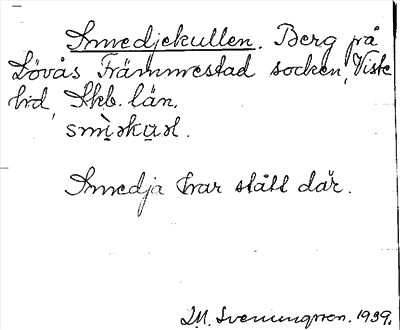 Smedjekullen. Berg på
Lövås Främmestad socken, Viste
hd, Skb. län.
Smedja har stått där.
M. Svenungsson. 1939.